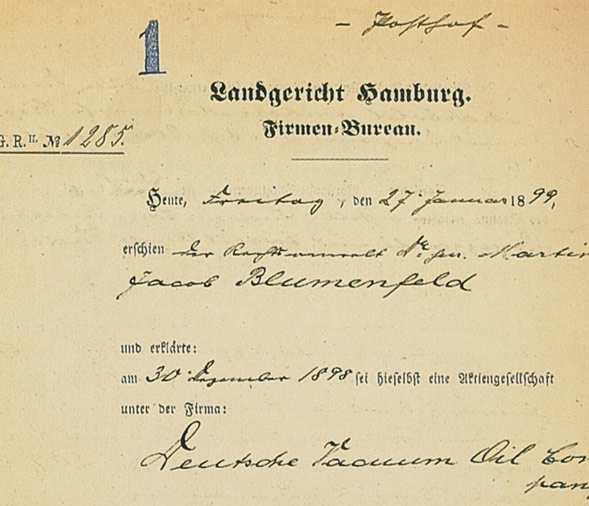 - Posthof -
1
Landgericht Hamburg.
Firmen-Bureau.
G. R. II. № 1285.
Heute, Freitag, den 27 Januar 1899,
erschien der Rechtsanwalt Dr jur. Martin
Jacob Blumenfeld
und erklärte:
am 30 Dezember 1898 sei hieselbst eine Aktiengesellschaft
unter der Firma:
Deutsche Vacuum Oil Com
pany